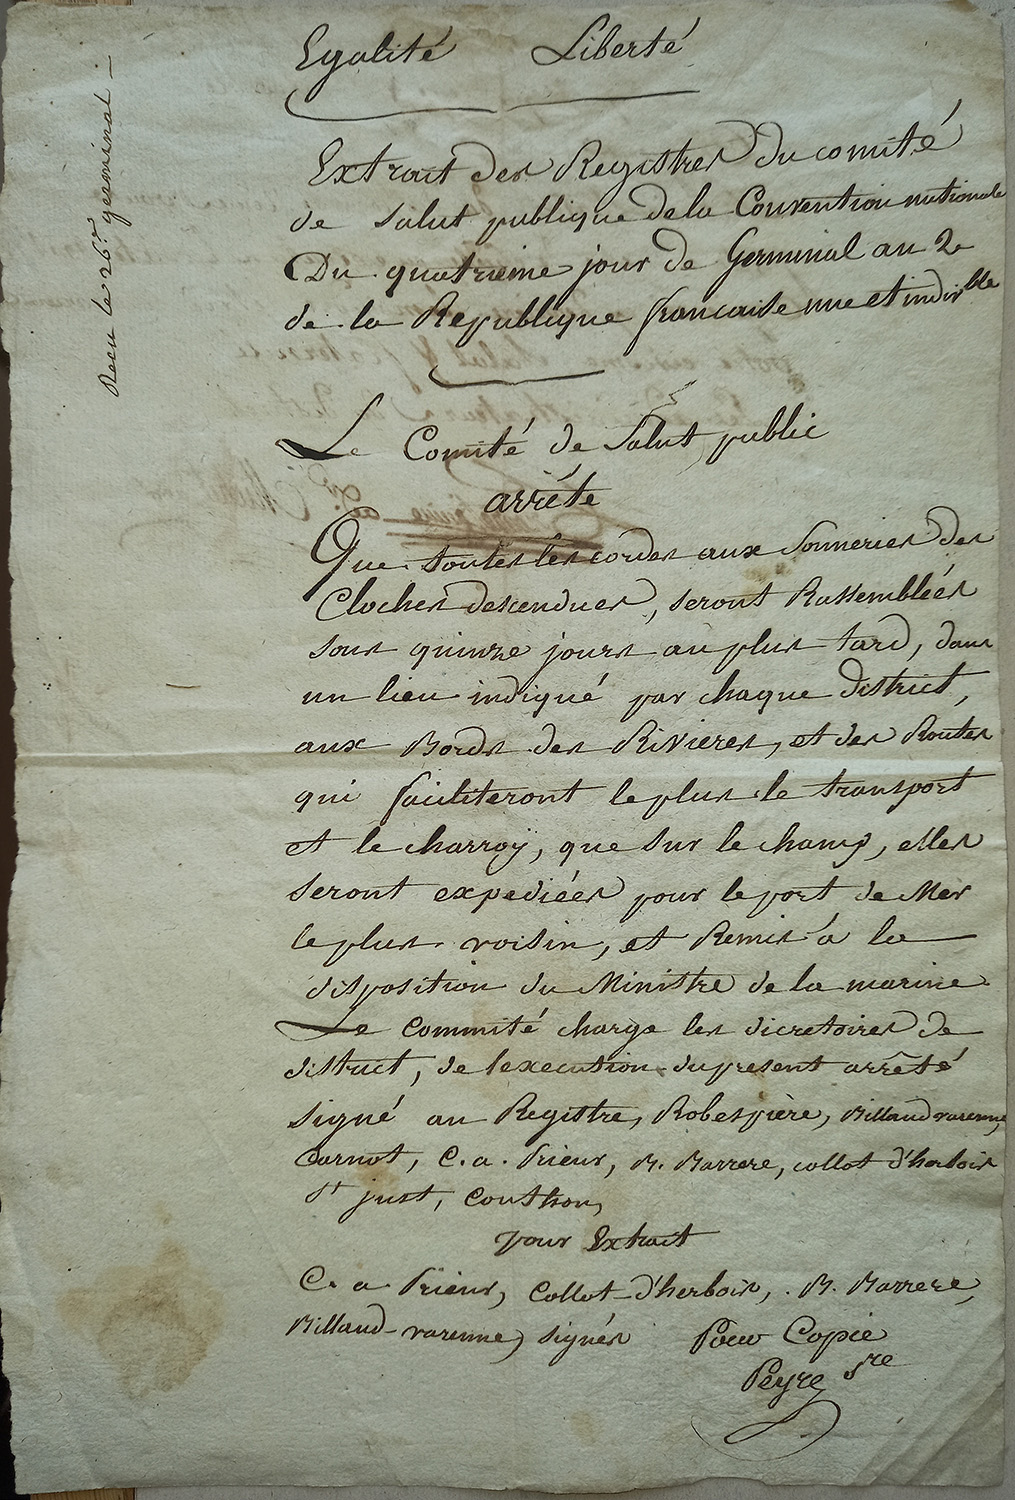 Egalité Liberté
Extrait des Registres Du comité
de Salut publique de la Convention nationale
Du quatrieme jour de Germinal an 2e
de la Republique francaise une et indivble
Le Comité de Salut public
arrête
Que toutes les cordes aux Sonneries des
Cloches descendues, seront Rassemblées
sous quinze jours au plus tard, dans
un lieu indiqué par chaque District,
aux Bords des Rivieres, et des Routes
qui faciliteront le plus le transport
et le charroÿ, que sur le champ, elles
seront expediées pour le port de Mer
le plus voisin, et Remis à la
disposition du Ministre de la marine
Le Commité charge les sicretoires de
district, de l'execution du present arrêté
signé au Registre, Robespière, Billaud varenne,
Carnot, C. a. Prieur, B. Barrere, collot d'herbois
St just, Couthon,
pour Extrait
C. a Prieur, Collot-d'herbois, B. Barrere,
Billaud-varenne, signés Pour Copie
Peyre sre
Recu le 26.r germinal -